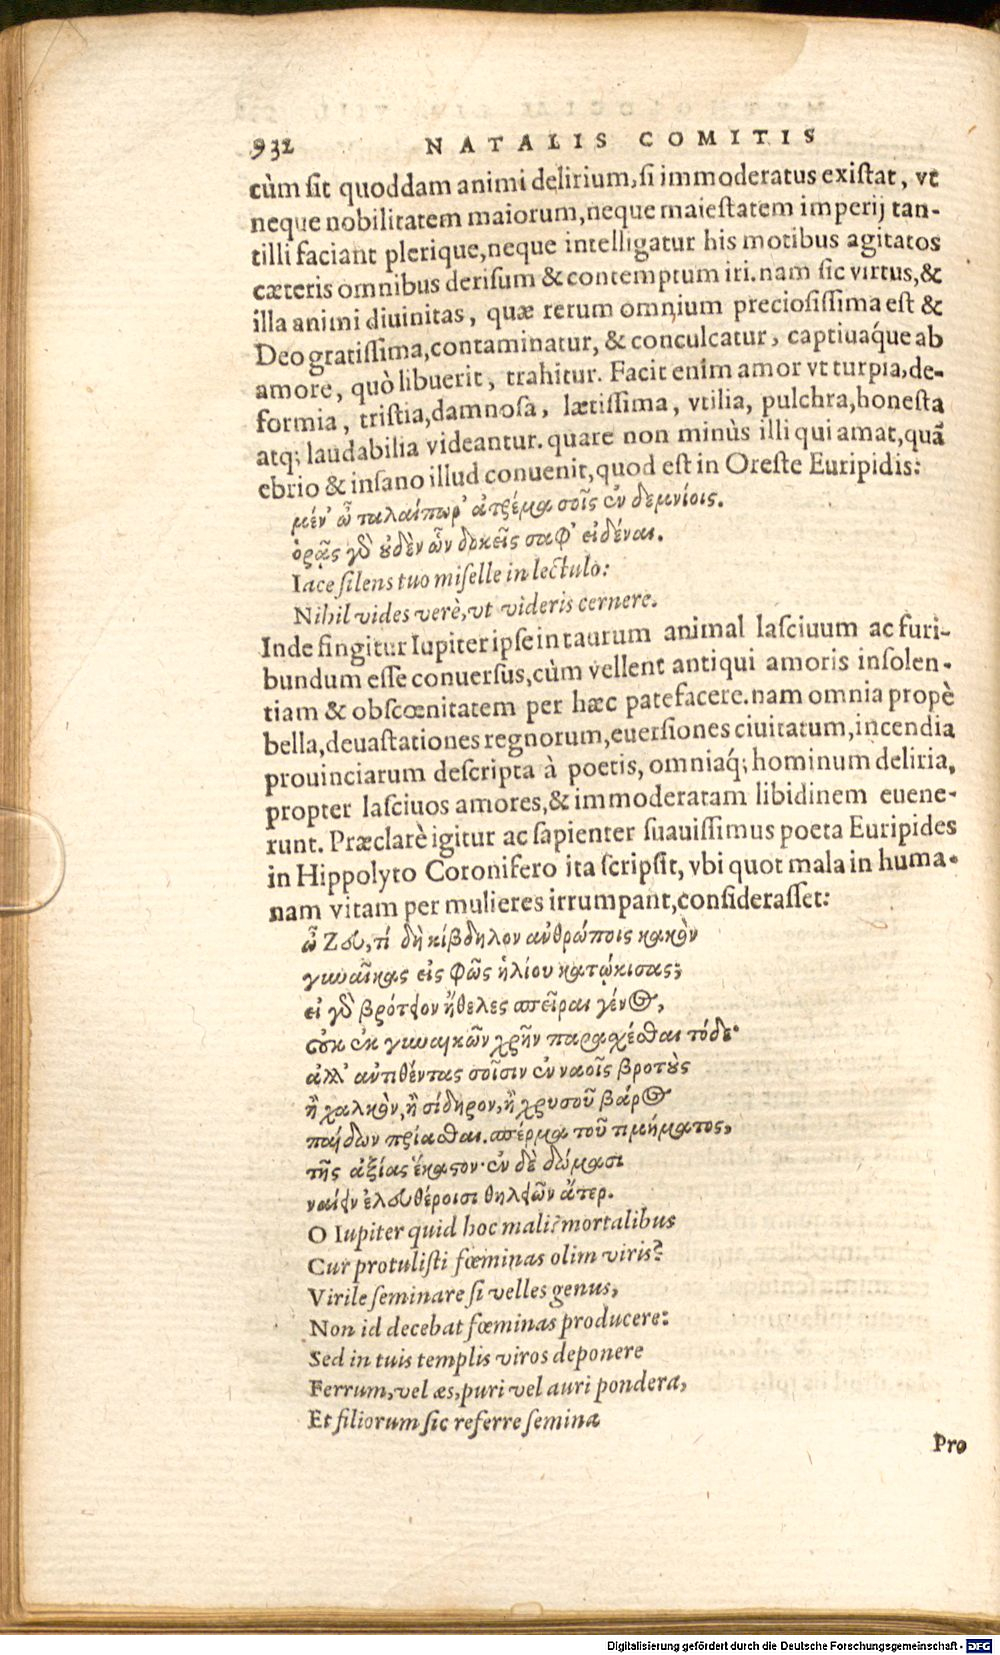 932 NATALIS COMITIS
cùm sit quoddam animi delirium, si immoderatus existat, vt
neque nobilitatem maiorum, neque maiestatem imperij tan-
tilli faciant plerique, neque intelligatur his motibus agitatos
cæteris omnibus derisum & contemptum iri. nam sic virtus, &
illa animi diuinitas, quæ rerum omnium preciosissima est &
Deo gratissima, contaminatur, & conculcatur, captiuáque ab
amore, quò libuerit, trahitur. Facit enim amor vt turpia, de-
formia, tristia, damnosa, lætissima, vtilia, pulchra, honesta
atq; laudabilia videantur. quare non minùs illi qui amat, quã
ebrio & insano illud conuenit, quod est in Oreste Euripidis:
μέν' ὦ ταλαίπωρ' ἀτρέμα σοῖς ἐν δεμνίοις.
ὁρᾷς γὸ οὐδὲν ὧν δοκεῖς σαφ' εἰδέναι.
Iace silens tuo miselle in lectulo:
Nihil vides verè, vt videris cernere.
Inde fingitur Iupiter ipse in taurum animal lasciuum ac furi-
bundum esse conuersus, cùm vellent antiqui amoris insolen-
tiam & obscœnitatem per hæc patefacere. nam omnia propè
bella, deuastationes regnorum, euersiones ciuitatum, incendia
prouinciarum descripta à poetis, omniaq́; hominum deliria,
propter lasciuos amores, & immoderatam libidinem euene-
runt. Præclarè igitur ac sapienter suauissimus poeta Euripides
in Hippolyto Coronifero ita scripsit, vbi quot mala in huma-
nam vitam per mulieres irrumpant, considerasset:
ὦ Ζεῦ, τί δὴ κίβδηλον ἀνθρώποις κακὸν
γυναῖκας εἰς φῶς ἡλίου κατῴκισας;
εἰ γὸ βρότειον ἤθελες σπεῖραι γένος,
οὐκ ἐκ γυναικῶν χρῆν παραχέσθαι τόδε·
ἀλλ' ἀντιθέντας σοῖσιν ἐν ναοῖς βροτοὺς
ἢ χαλκὸν, ἢ σίδηρον, ἢ χρυσοῦ βάρος
παίδων πρίασθαι. σπέρμα τοῦ τιμήματος,
τῆς ἀξίας ἕκαστον· ἐν δὲ δώμασι
ναίειν ἐλευθέροισι θηλειῶν ἄτερ.
O Iupiter quid hoc mali? mortalibus
Cur protulisti fœminas olim viris?
Virile seminare si velles genus,
Non id decebat fœminas producere:
Sed in tuis templis viros deponere
Ferrum, vel æs, puri vel auri pondera,
Et filiorum sic referre semina
Pro
Digitalisierung gefördert durch die Deutsche Forschungsgemeinschaft - DFG